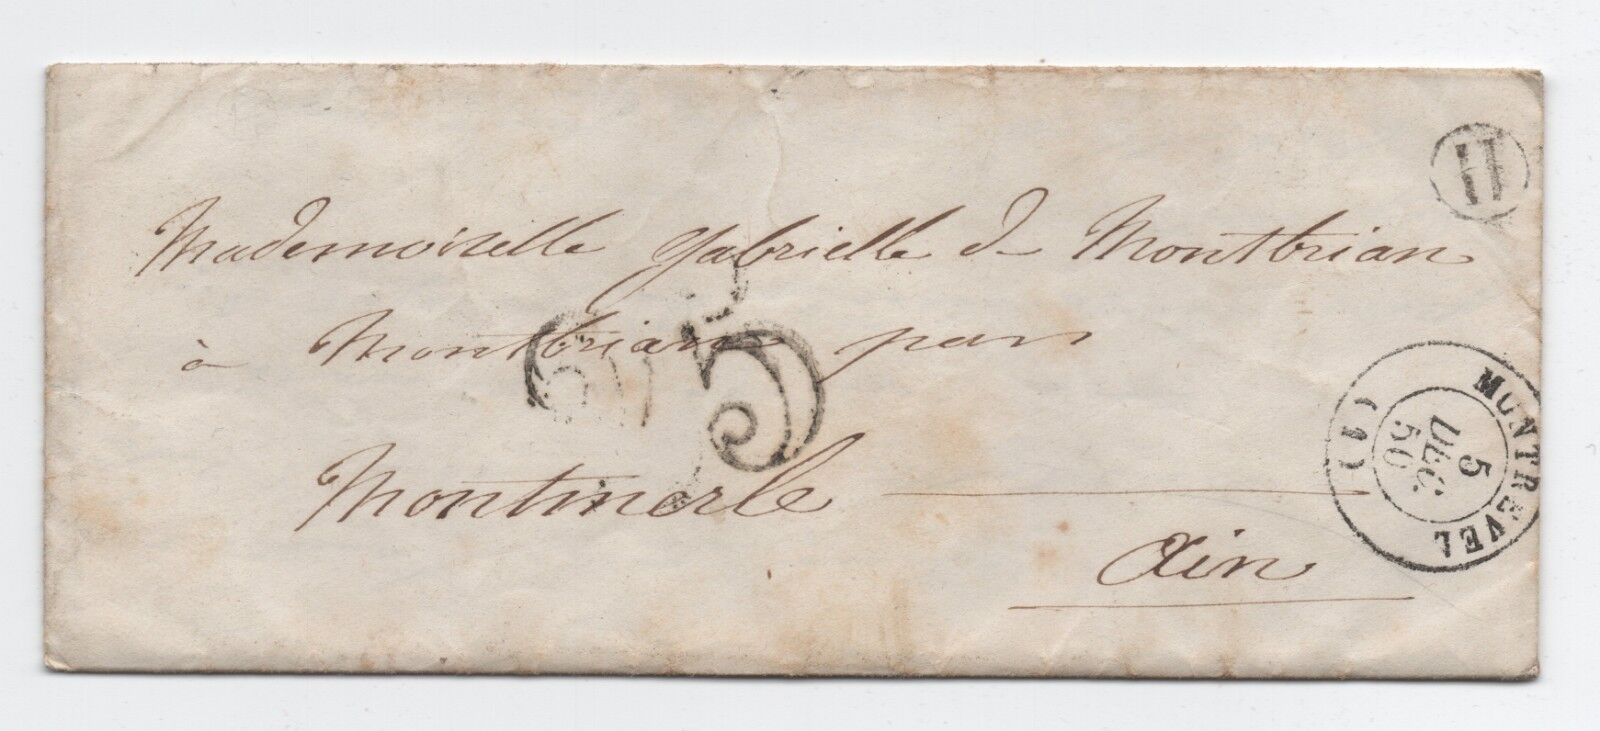 H
Mademoiselle Gabrielle de Montbrian
à Montbrian par
25
Montmerle
Ain
MONTREVEL
5
DEC.
50
(1)